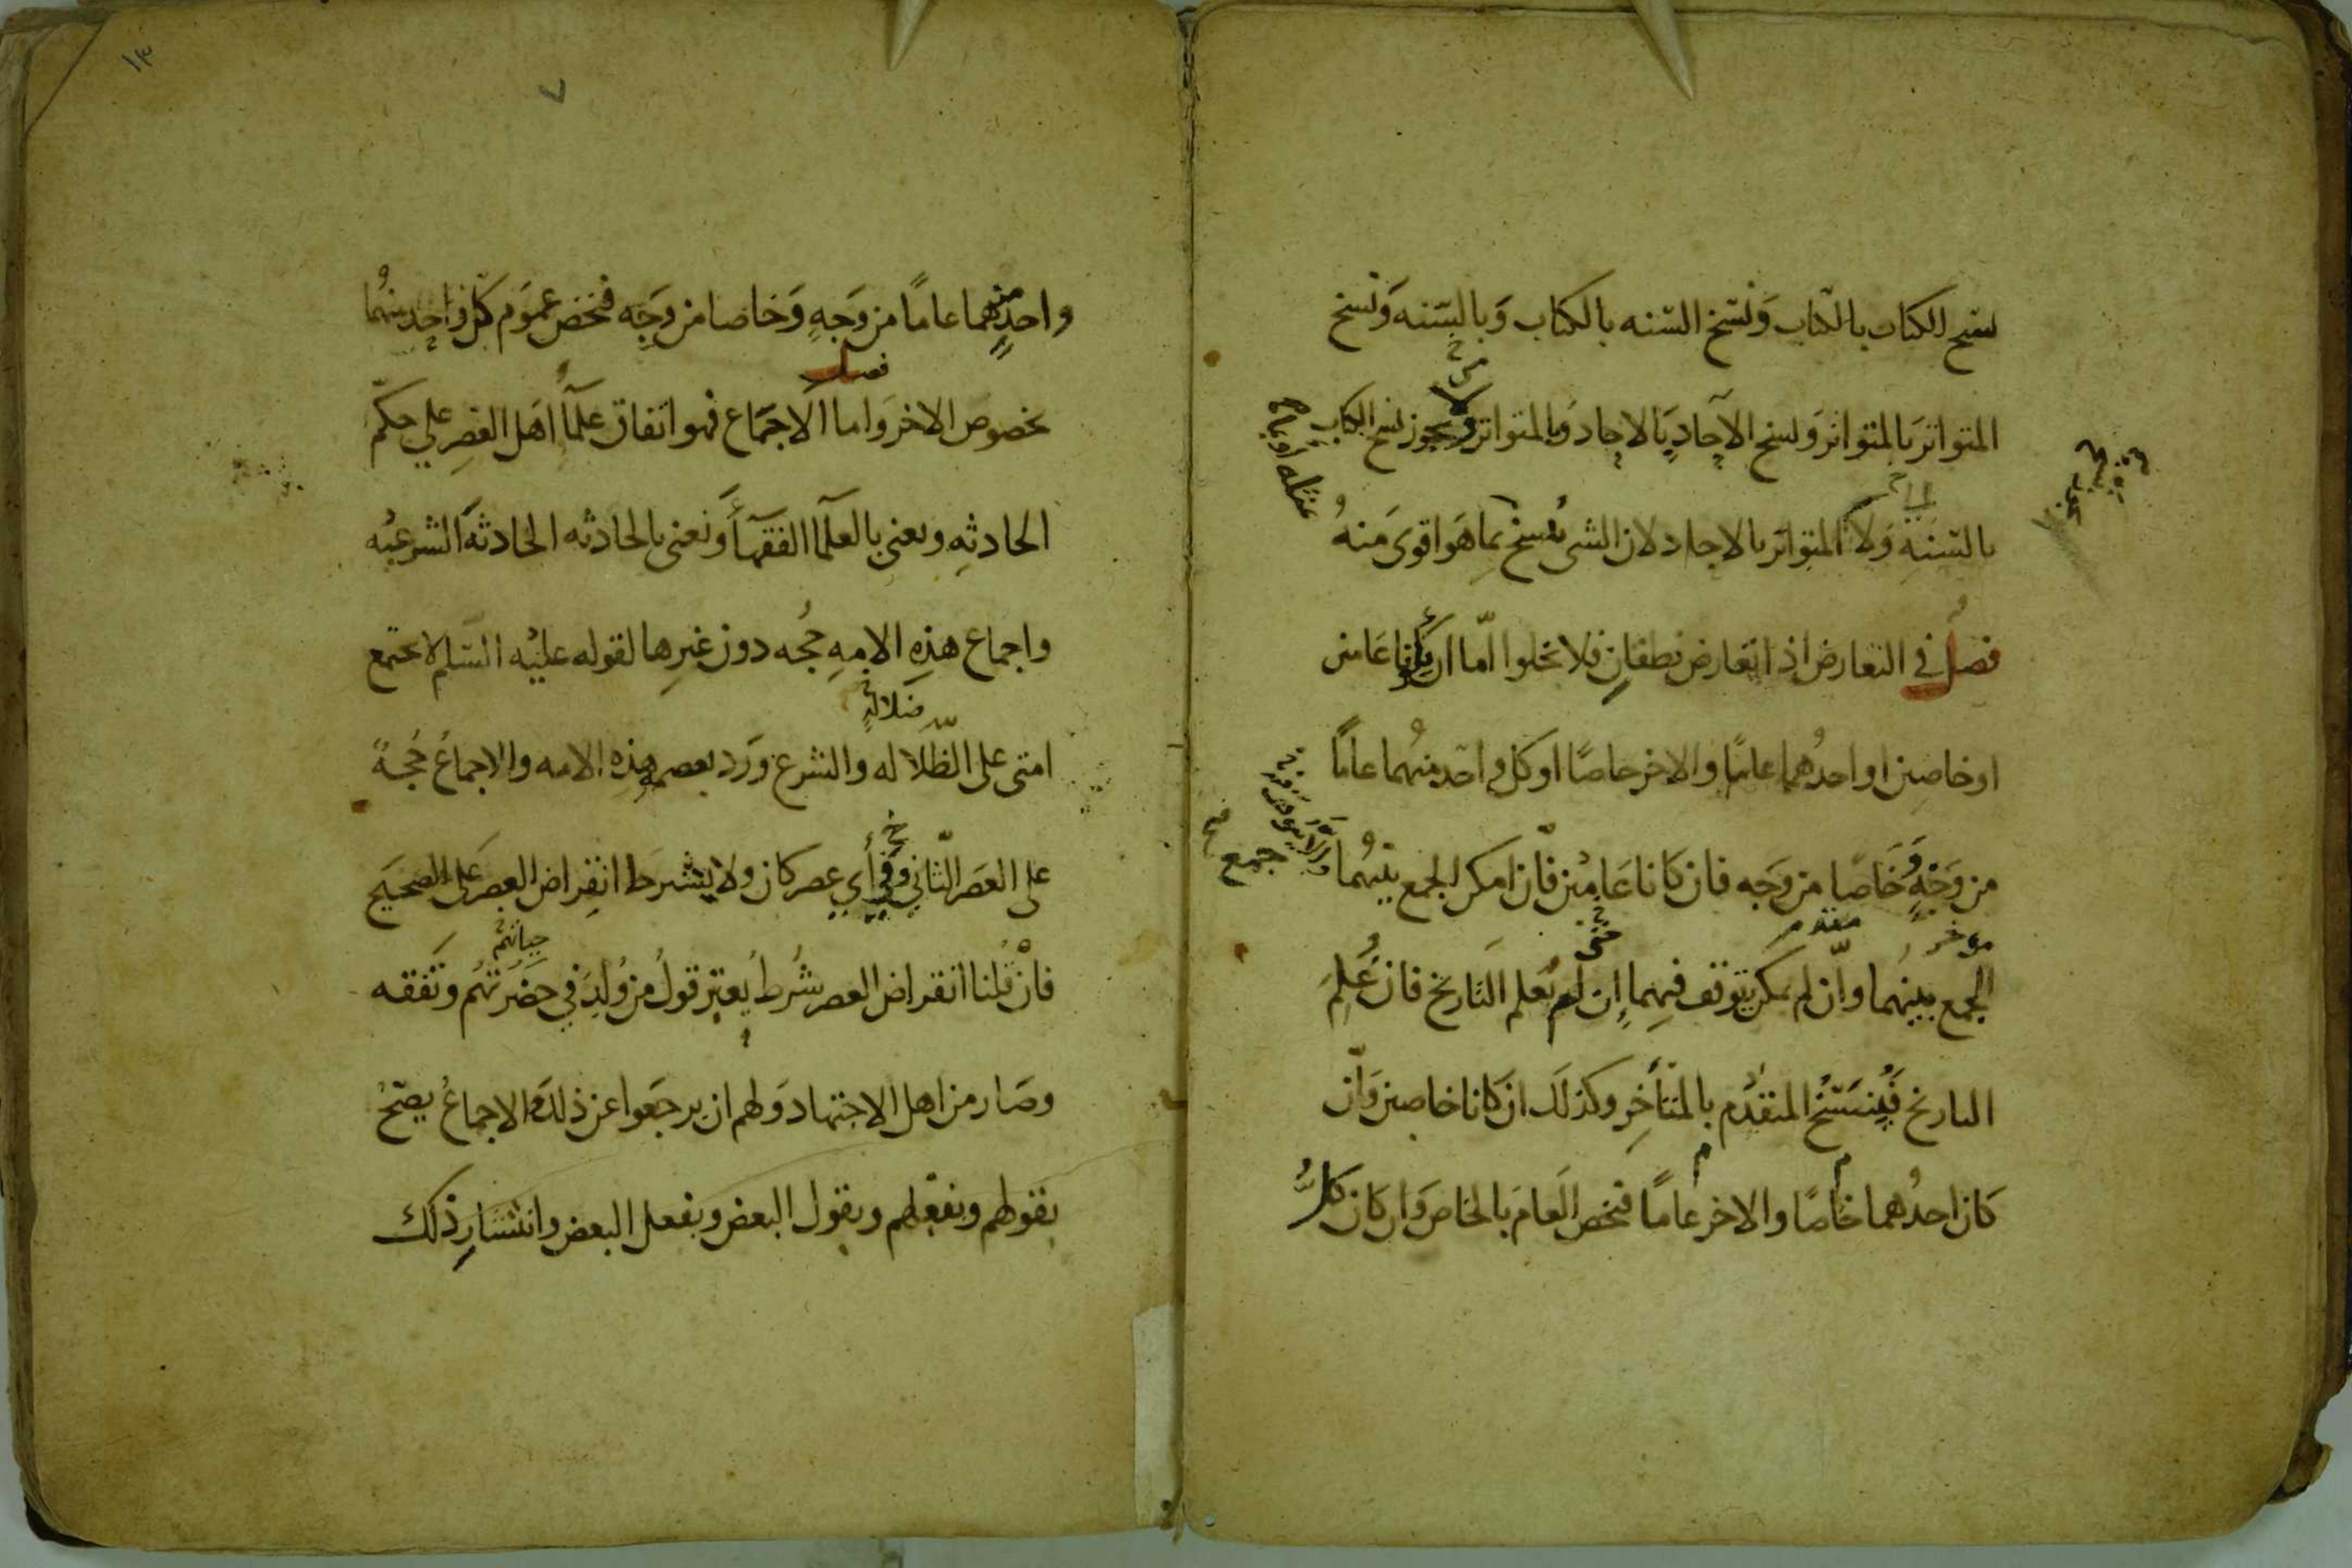 نسخ الكتاب بالكتاب وَنسَخ السّنه بالكتاب وَبالسّنه وَنسخ
المتواتر بالمتواتر وَنسخ الآحادِ بالاحاد وَبالمتواتر ولا يجوز نسخ الكتاب
بالسّنةِ وَلا المتواتر بالاحاد لان الشى يُنسخ بمِا هَوا قوىَ مَنهُ
فصلُ في التعارض اذ اتعارض نطقانِ فلا يخلوا امّا ان يكونا عَامين
او خاصين او احدُهما عامًا والاخر خاصًا او كل واحد منهُما عامًا
من وَجْهٍ وَخَاصًا من وَجه فان كانا عَامِيْن فاّن امكن الجمع بينهُما
موخر متقدم حتى
الجمع بينهما واّن لم يمكن يتوقف فيهمِا إن لم يُعلم التاريخ فان عُلِمَ
التاريخ فَيُنسَخُ المتقدُم بالمتأخِر وكذلَك ان كانا خاصين وَاّن
كان احدُهما خاصًا والاخر عامًا فيخص العَامَ بالخاصَ وَان كان كلُّ
جمع
١٣
٧
واحدٍ منهما عامًا من وَجَهٍ وَخاصا من وَجِه فيخص عمَوم كل واحِد منهُما
فصل
بخصوصَ الاخر وَاما الاجمَاع فهو اتفاق علمآء اهَل العصِر علي حكم
الحادثِه ونعنى بالعلمآ الفقهآء وَنعنى بالحادثه الحادثهَ الشرعيُه
واجماع هذِه الامِهِ حجُه دون غيرِها لقوله عليْه السّلم لا تجتمع
ضلالةٍ
امتى على الظّلاله والشرع وَرَد بعصمهِ هذِه الامه والاجماعُ حُجةٌ
على العصَر الثّاني وَفي أي عصر كان ولا يشترط انقِراض العصر عَلى الصحيَح
حياتهم
فانْ قُلنا انقراض العصر شُرطُ يُعتبر قولُ من وُلِدَ في حضَرتهُم وَتفقه
وصَار من اهل الاجتهاد وَلهم ان يرجَعوا عن ذلك والاجماعُ يصَحُ
بقولهم وبفعْلهم وبقول البعض وبفعل البعض وانتشار ذلك